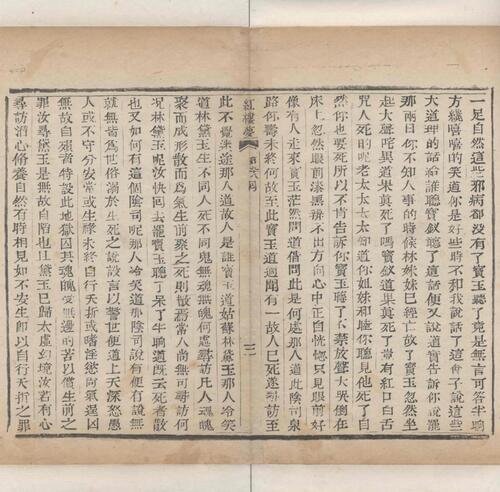 一足自然這些邪病都沒有了寶玉聽了竟是無言可答半晌
方纔嘻嘻的笑道你是好些時不和我說話了這會子說這些
大道理的話給誰聽寶釵聽了這話便又說道實告訴你說罷
那兩日你不知人事的時候林妹妹已經亡故了寶玉忽然坐
起大聲咤異道果真死了嗎寶釵道果真死了豈有紅口白舌
咒人死的呢老太太太太知道你姐妹和睦你聽見他死了自
然你也要死所以不肯告訴你寶玉聽了不禁放聲大哭倒在
床上忽然眼前漆黑辨不出方向心中正自恍惚只見眼前好
像有人走來寶玉茫然問道借問此是何處那人道此陰司泉
路你壽未終何故至此寶玉道適聞有一故人已死遂尋訪至
紅樓夢 第 回 三
此不覺迷途那人道故人是誰寶玉道姑蘇林黛玉那人冷笑
道林黛玉生不同人死不同鬼無魂無魄何處尋訪凡人魂魄
聚而成形散而爲氣生前聚之死則散焉常人尚無可尋訪何
況林黛玉呢汝快回去罷寶玉聽了呆了半晌道既云死者散
也又如何有這個陰司呢那人冷笑道那陰司說有便有說無
就無皆爲世俗溺於生死之說設言以警世便道上天深怒愚
人或不守分安常或生祿未終自行夭折或嗜淫慾尚氣逞凶
無故自殞者特設此地獄囚其魂魄受無邊的苦以償生前之
罪汝尋黛玉是無故自陷也且黛玉已歸太虛幻境汝若有心
尋訪潛心修養自然有時相見如不安生即以自行夭折之罪